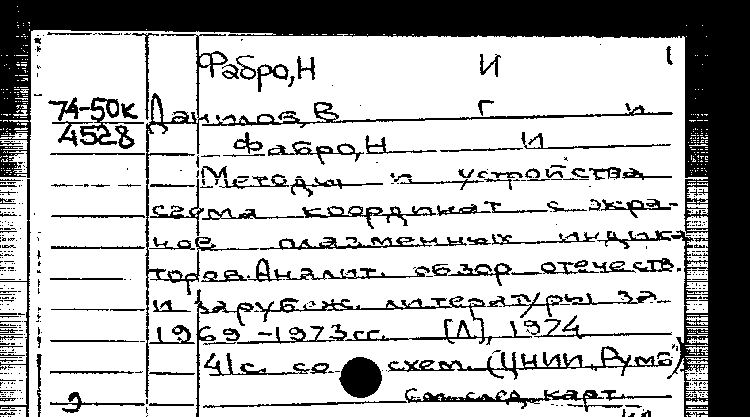 1
Фабро, Н И
74-50к Данилов, В Г и
4528 Фабро, Н И
Методы и устройства
съема координат с экра-
нов плазменных индика
торов. Аналит. обзор отечеств.
и зарубеж. литературы за
1969-1973гг. [Л], 1974
41с. со схем. (ЦНИИ „Румб")
См. след. карт.